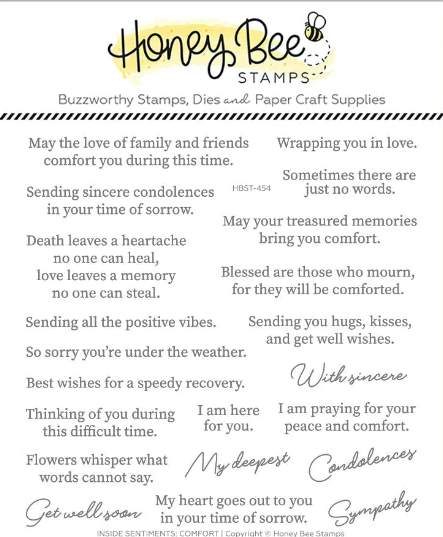 Honey Bee
STAMPS
Buzzworthy Stamps, Dies and Paper Craft Supplies
May the love of family and friends
comfort you during this time.
Wrapping you in love.
Sometimes there are
just no words.
Sending sincere condolences
in your time of sorrow.
HBST-454
May your treasured memories
bring you comfort.
Death leaves a heartache
no one can heal,
love leaves a memory
no one can steal.
Blessed are those who mourn,
for they will be comforted.
Sending all the positive vibes.
Sending you hugs, kisses,
and get well wishes.
So sorry you're under the weather.
With sincere
Best wishes for a speedy recovery.
Thinking of you during
this difficult time.
I am here
for you.
I am praying for your
peace and comfort.
Flowers whisper what
words cannot say.
My deepest
Condolences
Get well soon
My heart goes out to you
in your time of sorrow.
Sympathy
INSIDE SENTIMENTS: COMFORT | Copyright © Honey Bee Stamps